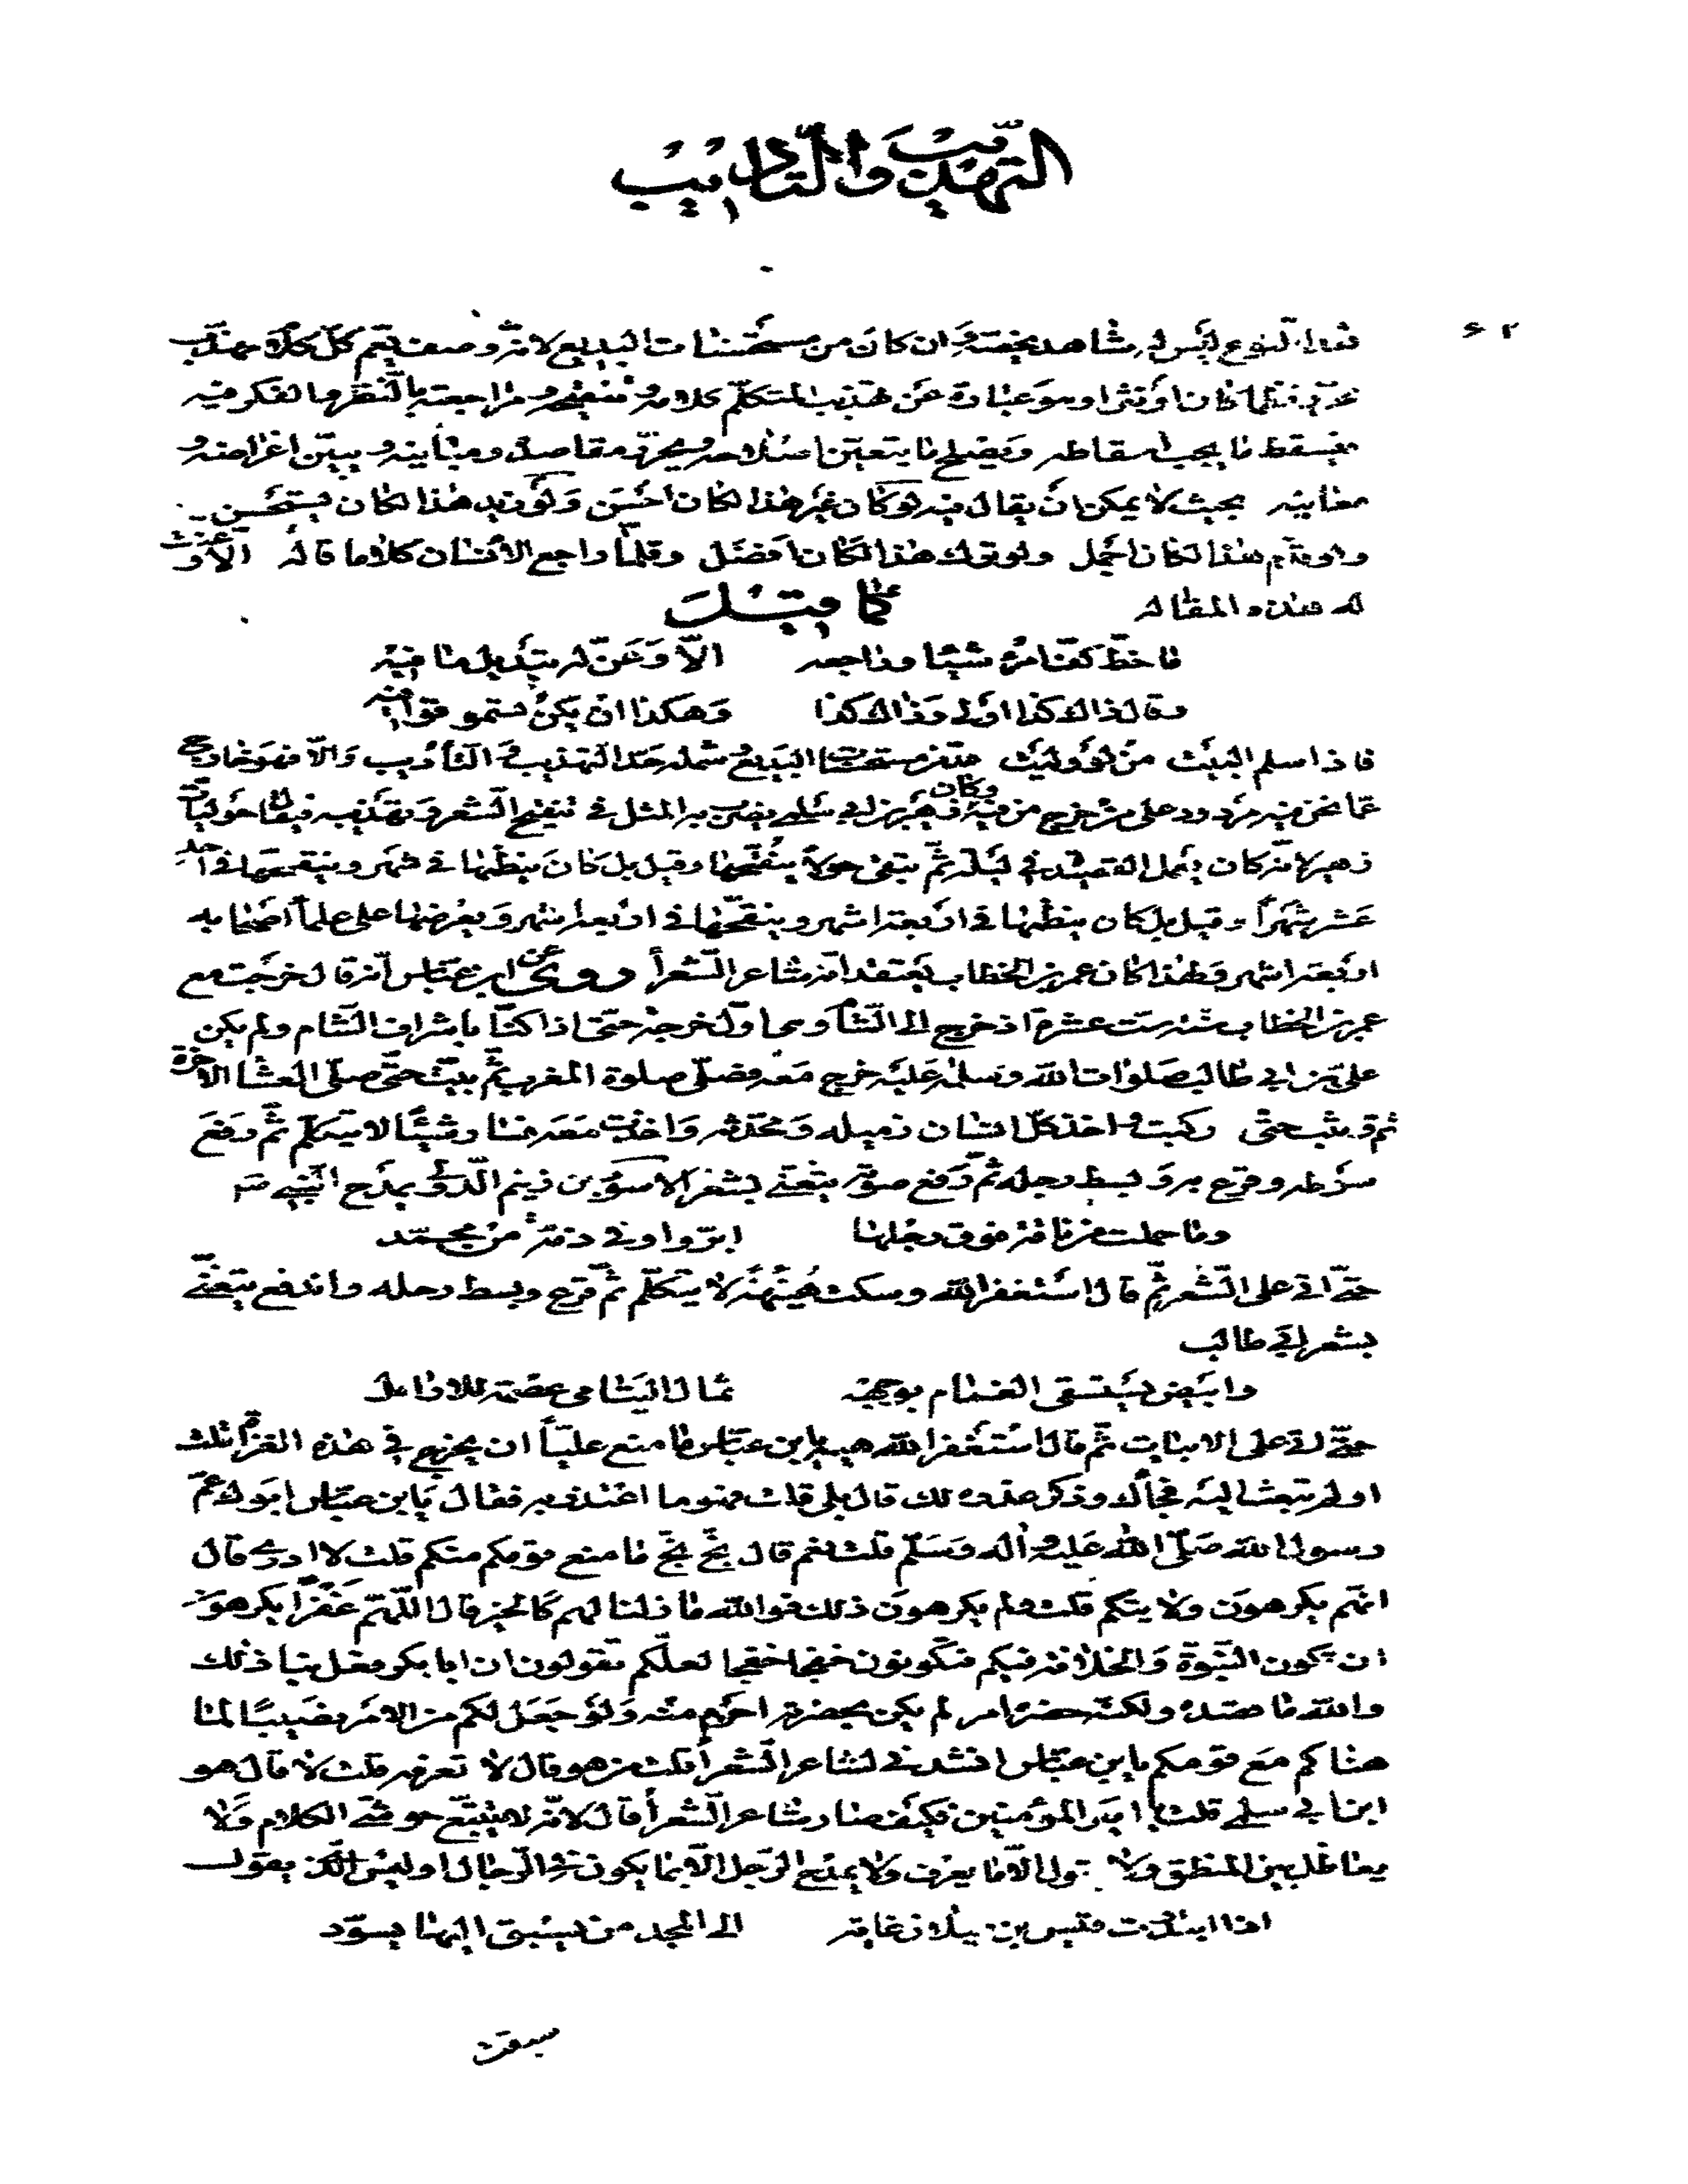 التهذيب والتأديب
هذا النوع ليس له شاهد يخصه وان كان من مستحسنات البديع لانه وصف يعم كل كلام مهذب
نظما كان او نثرا وهو عبارة عن تهذيب المتكلم كلامه وتنقيحه ومراجعته بالنظر والفكر فيه
فيسقط ما يجب اسقاطه ويصلح ما يتعين اصلاحه ويحرر مقاصده ومبانيه ويبين اغراضه و
معانيه بحيث لا يمكن ان يقال فيه لو كان غير هذا لكان احسن ولو زيد هذا لكان يستحسن
ولو قدم هذا لكان اجمل ولو ترك هذا لكان افضل وقلما راجع الانسان كلاما قاله الا وعنت
له هذه المقاله كما قيل
ما خط كف امرء شيئا وراجعه الا وعن له تبديل ما فيه
وقال ذاك كذا اولى وذاك كذا وهكذا ان يكن تسمو قوافيه
فاذا سلم البيت من لو وليت عد من مستحسنات البديع وشمله حد التهذيب والتأديب والا فهو خارج
عما نحن فيه مردود على مخرجه من فيه وكان زهير بن ابي سلمى يضرب به المثل في تنقيح الشعر وتهذيبه فيقال حوليات
زهير لانه كان يعمل القصيدة في ليلة ثم يبقى حولا ينقحها وقيل بل كان ينظمها في شهر وينقحها في احد
عشر شهرا وقيل بل كان ينظمها في اربعة اشهر وينقحها في اربعة اشهر ويعرضها على علماء اصحابه
اربعة اشهر ولهذا كان عمر بن الخطاب يعتقد انه شاعر الشعراء روى عن ابن عباس انه قال خرجت مع
عمر بن الخطاب سنة ست عشرة اذ خرج الى الشام وهي اول خرجة حتى اذا كنا باشراف الشام ولم يكن
علي بن ابي طالب صلوات الله وسلامه عليه خرج معه فصلى صلوة المغرب ثم بيت حتى صلى العشاء الاخرة
ثم حتى ركبت واخذ كل انسان زميله ومحدثه واخذت معه شيئا لا يتكلم ثم رفع
سوطه وقرع به وبسط رجله ثم رفع صوته يتغنى بشعر الاسود بن زنيم الدئلي يمدح النبي ص
وما حملت من ناقة فوق رحلها ابر واوفى ذمة من محمد
حتى اتى على الشعر ثم قال استغفر الله وسكت هنيهة لا يتكلم ثم قرع وبسط رحله واندفع يتغنى
بشعر ابي طالب
وابيض يستسقى الغمام بوجهه ثمال اليتامى عصمة للارامل
حتى اتى على الابيات ثم قال استغفر الله هيه يا ابن عباس ما منع عليا ان يخرج في هذه الغزاة قلت
اولم تبعث اليه فجاءك وذكر عذره لك قال بلى قلت فهو ما اعتذر به فقال يا ابن عباس ابوك عم
رسول الله صلى الله عليه واله وسلم قلت نعم قال بخ بخ ما منع قومكم منكم قلت لا ادرى قال
انهم يكرهون ولايتكم قلت ولم يكرهون ذلك فوالله ما زلنا لهم كالخير قال اللهم غفرا يكرهون
ان يكون النبوة والخلافة فيكم فتكونون خفجا خفجا لعلكم تقولون ان ابا بكر فعل بنا ذلك
والله ما قصده ولكنه حضره امر لم يكن بحضرته احزم منه ولو جعل لكم من الامر نصيبا لما
هناكم مع قومكم يا ابن عباس انشدني لشاعر الشعراء قلت من هو قال لا تعرفه قلت لا قال هو
ابن ابي سلمى قلت يا امير المؤمنين فكيف صار شاعر الشعراء قال لانه لا يتبع حوشي الكلام ولا
يعاظل بين المنطق ولا يقول الا ما يعرف ولا يمدح الرجل الا بما يكون في الرجال اوليس الذي يقول
اذا ابتدرت قيس بن عيلان غاية الى المجد من يسبق اليها يسود
سبقت